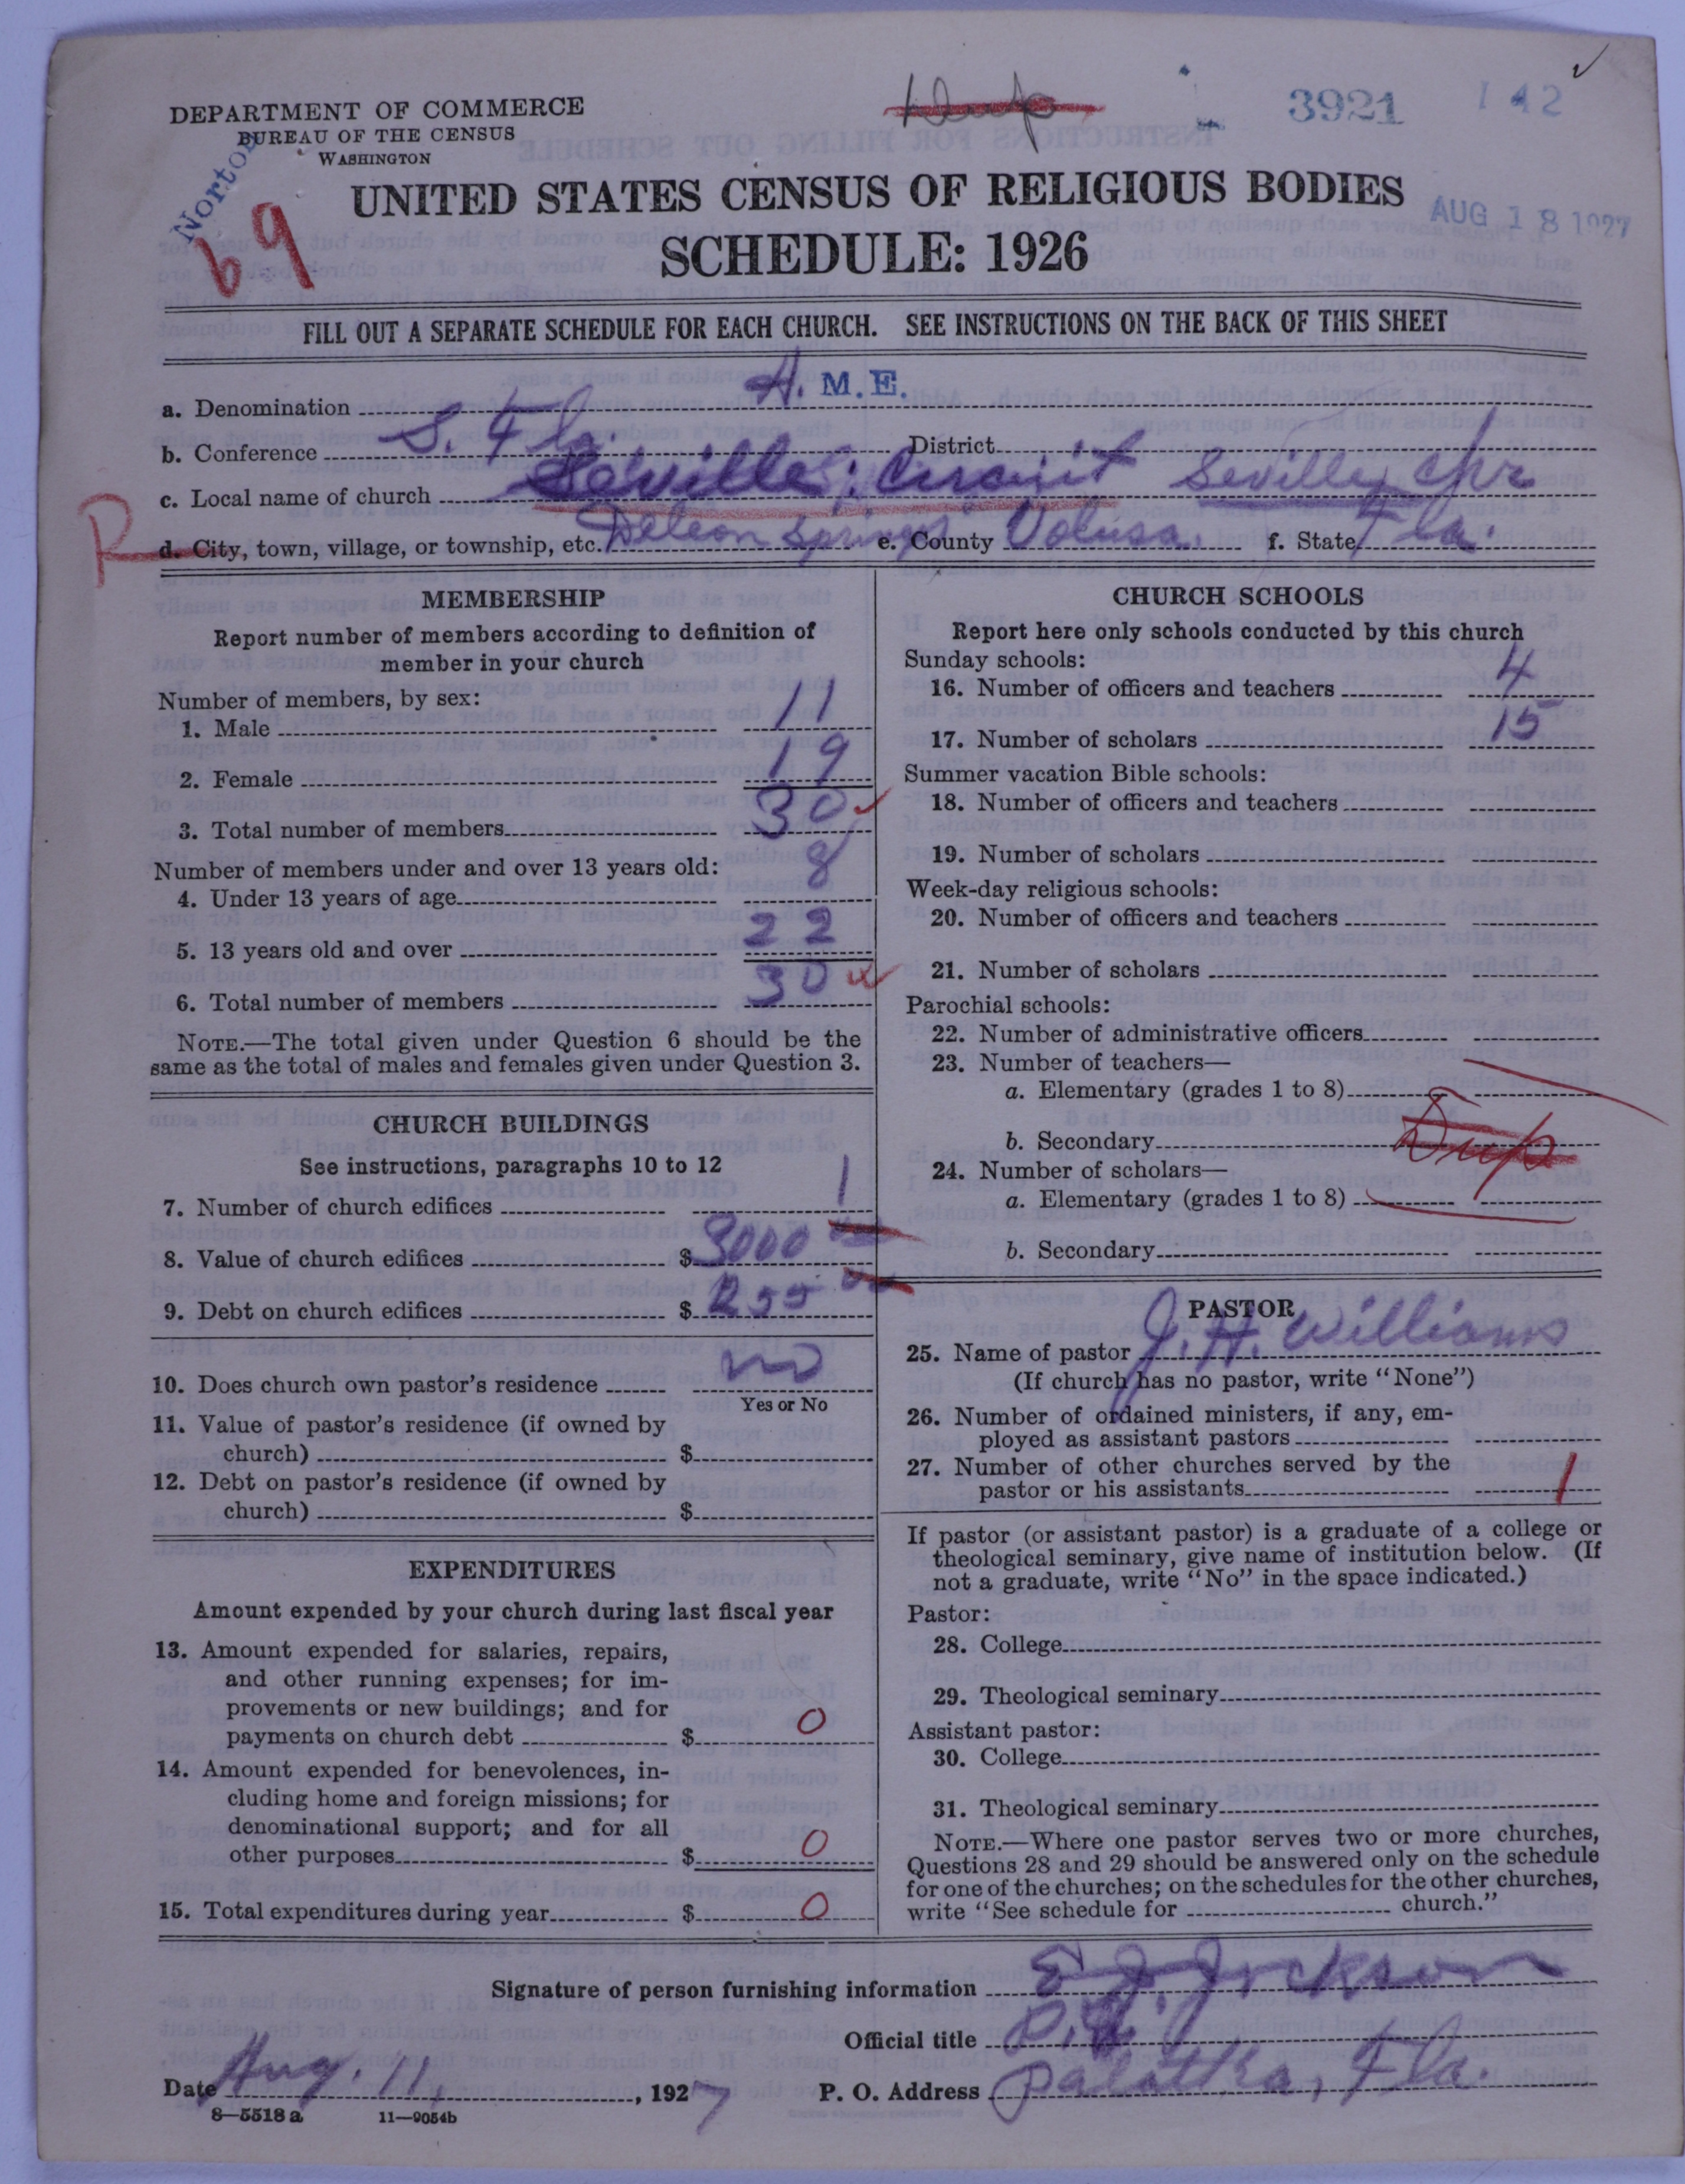 DEPARTMENT OF COMMERCE
BUREAU OF THE CENSUS
WASHINGTON
Dup
3921
142
Norton
69
UNITED STATES CENSUS OF RELIGIOUS BODIES
AUG 18 1927
SCHEDULE: 1926
FILL OUT A SEPARATE SCHEDULE FOR EACH CHURCH. SEE INSTRUCTIONS ON THE BACK OF THIS SHEET
a. Denomination A. M. E.
b. Conference S. Fla. District
c. Local name of church Seville: Circuit Seville, Chr
R
d. City, town, village, or township, etc. Deleon Springs e. County Volusa. f. State Fla.
MEMBERSHIP
Report number of members according to definition of
member in your church
Number of members, by sex:
1. Male 11
2. Female 19
3. Total number of members 30
Number of members under and over 13 years old:
4. Under 13 years of age 8
5. 13 years old and over 22
6. Total number of members 30
NOTE.—The total given under Question 6 should be the
same as the total of males and females given under Question 3.
CHURCH BUILDINGS
See instructions, paragraphs 10 to 12
7. Number of church edifices 1
8. Value of church edifices $ 3000
9. Debt on church edifices $ 255
10. Does church own pastor's residence no
Yes or No
11. Value of pastor's residence (if owned by
church) $
12. Debt on pastor's residence (if owned by
church) $
EXPENDITURES
Amount expended by your church during last fiscal year
13. Amount expended for salaries, repairs,
and other running expenses; for im-
provements or new buildings; and for
payments on church debt $ 0
14. Amount expended for benevolences, in-
cluding home and foreign missions; for
denominational support; and for all
other purposes $ 0
15. Total expenditures during year $ 0
CHURCH SCHOOLS
Report here only schools conducted by this church
Sunday schools:
16. Number of officers and teachers 4
17. Number of scholars 15
Summer vacation Bible schools:
18. Number of officers and teachers
19. Number of scholars
Week-day religious schools:
20. Number of officers and teachers
21. Number of scholars
Parochial schools:
22. Number of administrative officers
23. Number of teachers—
a. Elementary (grades 1 to 8)
b. Secondary
Dup
24. Number of scholars—
a. Elementary (grades 1 to 8)
b. Secondary
PASTOR
25. Name of pastor J. H. Williams
(If church has no pastor, write "None")
26. Number of ordained ministers, if any, em-
ployed as assistant pastors
27. Number of other churches served by the
pastor or his assistants 1
If pastor (or assistant pastor) is a graduate of a college or
theological seminary, give name of institution below. (If
not a graduate, write "No" in the space indicated.)
Pastor:
28. College
29. Theological seminary
Assistant pastor:
30. College
31. Theological seminary
NOTE.—Where one pastor serves two or more churches,
Questions 28 and 29 should be answered only on the schedule
for one of the churches; on the schedules for the other churches,
write "See schedule for church."
Signature of person furnishing information E. J. Jackson
Official title P. E.
Date Aug. 11, 1927 P. O. Address Palatka, Fla.
8—5518 a 11—9054b